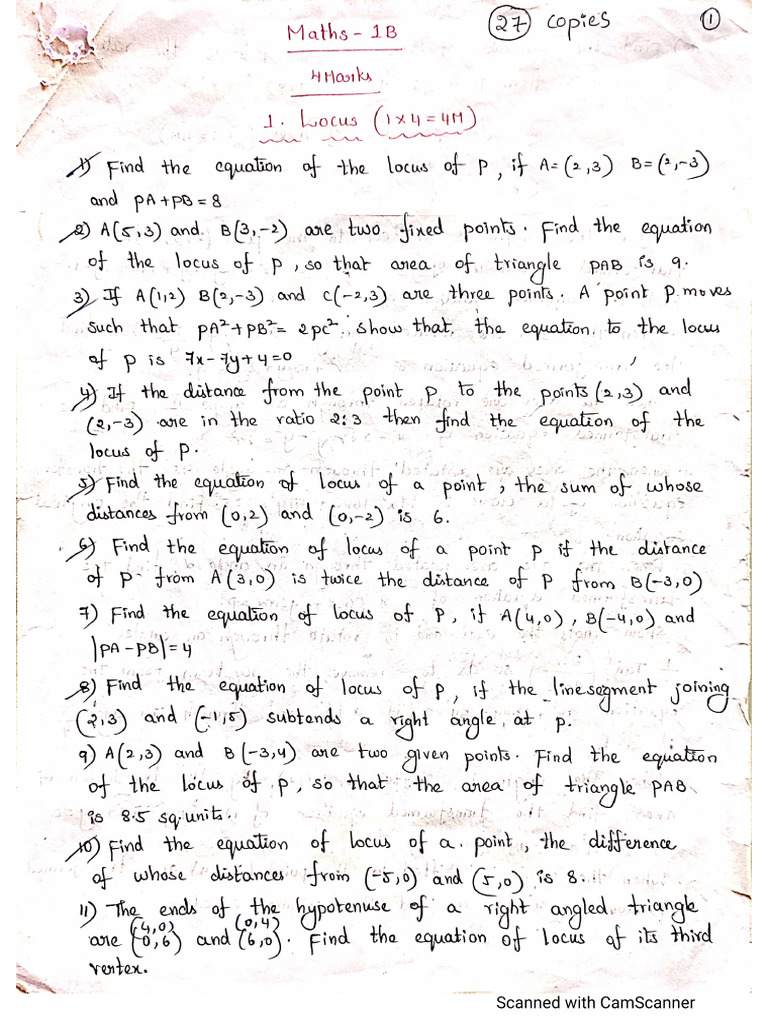 27 copies
1
Maths - 1B
4 Marks
1. Locus (1×4=4M)
1) Find the equation of the locus of P, if A=(2,3) B=(2,-3)
and PA+PB=8
2) A(5,3) and B(3,-2) are two fixed points. Find the equation
of the locus of P, so that area of triangle PAB is 9.
3) If A(1,2) B(2,-3) and C(-2,3) are three points. A point P moves
such that PA²+PB²=2PC². Show that, the equation to the locus
of P is 7x-7y+4=0
4) If the distance from the point P to the points (2,3) and
(2,-3) are in the ratio 2:3 then find the equation of the
locus of P.
5) Find the equation of locus of a point, the sum of whose
distances from (0,2) and (0,-2) is 6.
6) Find the equation of locus of a point P if the distance
of P from A(3,0) is twice the distance of P from B(-3,0)
7) Find the equation of locus of P, if A(4,0), B(-4,0) and
|PA-PB|=4
8) Find the equation of locus of P, if the line segment joining
(2,3) and (-1,5) subtends a right angle at P.
9) A(2,3) and B(-3,4) are two given points. Find the equation
of the locus of P, so that the area of triangle PAB
is 8.5 sq.units.
10) Find the equation of locus of a point, the difference
of whose distances from (-5,0) and (5,0) is 8.
11) The ends of the hypotenuse of a right angled triangle
(4,0) (0,4)
are (0,6) and (6,0). Find the equation of locus of its third
vertex.
Scanned with CamScanner